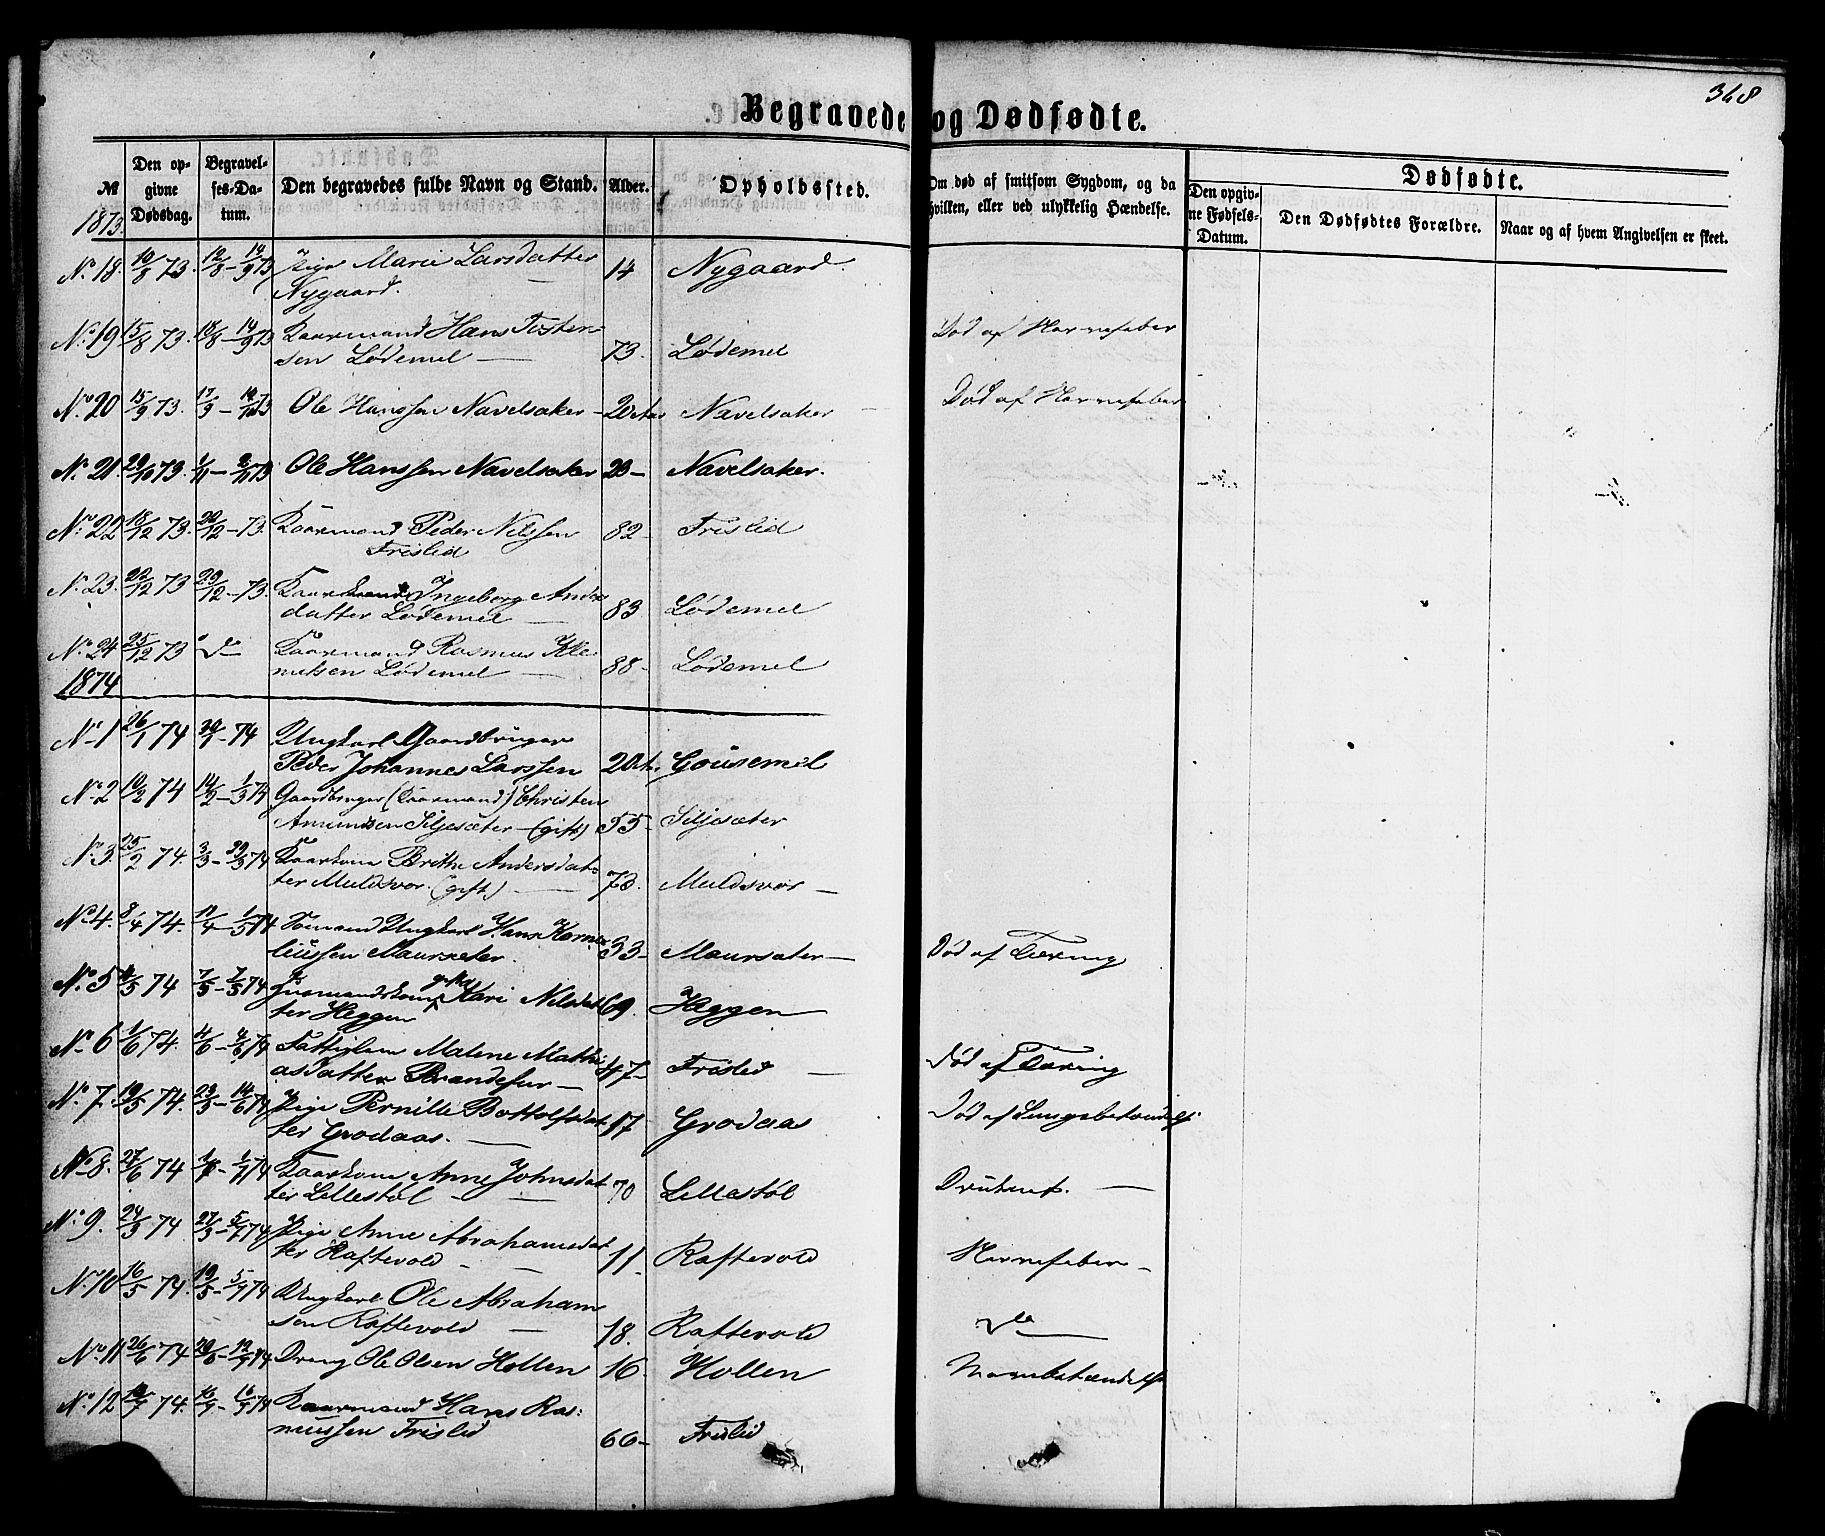 368
Begravede og Dødfødte.
№
1873.
Den op-
givne
Dødsdag.
Begravel-
ses-Da-
tum.
Den begravedes fulde Navn og Stand.
Alder.
Opholdssted.
Om død af smitsom Sygdom, og da
hvilken, eller ved ulykkelig Hændelse.
Dødfødte.
Den opgiv-
ne Fødsels-
Datum.
Den Dødfødtes Forældre.
Naar og af hvem Angivelsen er skeet.
No 18. 10/8 73. 12/8 - 14/9 73 Pige Marie Larsdatter 14 Nygaard.
Nygaard.
No 19 15/8 73. 18/8 - 14/9 73 Kaarmand Hans Toster-
sen Lødemel 73. Lødemel Død af Nervefeber
No 20 15/9 73. 17/9 Ole Hanssen Navelsaker - Navelsaker Død af Nervefeber
No 21. 29/10 73. 1/11 - 2/11 73 Ole Hanssen Navelsaker Navelsaker.
No 22 18/12 73. 20/12 - 73. Kaarmand Peder Nilssen 82 - Frislid
Frislid
No 23. 22/12 73 29/12 - 73. Ingeborg Anders
datter Lødemel 83 Lødemel
No 24 25/12 73 do Kaarmand Rasmus Kle-
metsen Lødemel 88 - Lødemel
1874
No 1 26/1 74 30/1 - 74 Ungkarl Gaardbruger
Peder Johannes Larssen Gousemel
No 2 10/2 74 14/2 - 1/3 74 Gaardbruger (Kaarmand) Christen
Amundsen Siljesæter - (gift) 55 - Siljesæter
No 3. 25/2 74. 3/3 - 29/3 74 Kaarkone Brithe Andersdat-
ter Muldsvor. (gift) 73. Muldsvor -
No 4. 8/4 74. - 1/5 74 Ungkarl Hans Korne-
liussen Maursæter. 33 - Maursæter - Død af Tæring
No 5 4/5 74 7/5 - 7/5 74 Husmandskone Kari Nilsdat
ter Heggen 69. Heggen
No 6 1/6 74. 4/6 - 4/6 74 Fattiglem Malene Mathi
asdatter Brandefur - 47 - Frislid Død af Tæring
No 7. 19/5 74. 23/5 - 14/6 74 Pige Pernille Bottolfsdat
ter Grodaas. 17 Grodaas Død af Lungebetændelse
No 8. 27/6 74 - 1/7 74 Kaarkone Anne Johnsdat
ter Lillestøl 70 Lillestøl
No 9. 24/3 74 27/3 - 5/7 74 Pige Anne Abrahamsdat
ter Raftevold 11 Raftevold Nervefeber -
No 10 16/5 74. 19/5 - 5/7 74 Ungkarl Ole Abraham
sen Raftevold 18. Raftevold do
No 11 26/6 74 Dreng Ole Olsen Hollen 16. Hollen
No 12 74. Kaarmand Hans Ras:
mussen Frislid 66 - Frislid